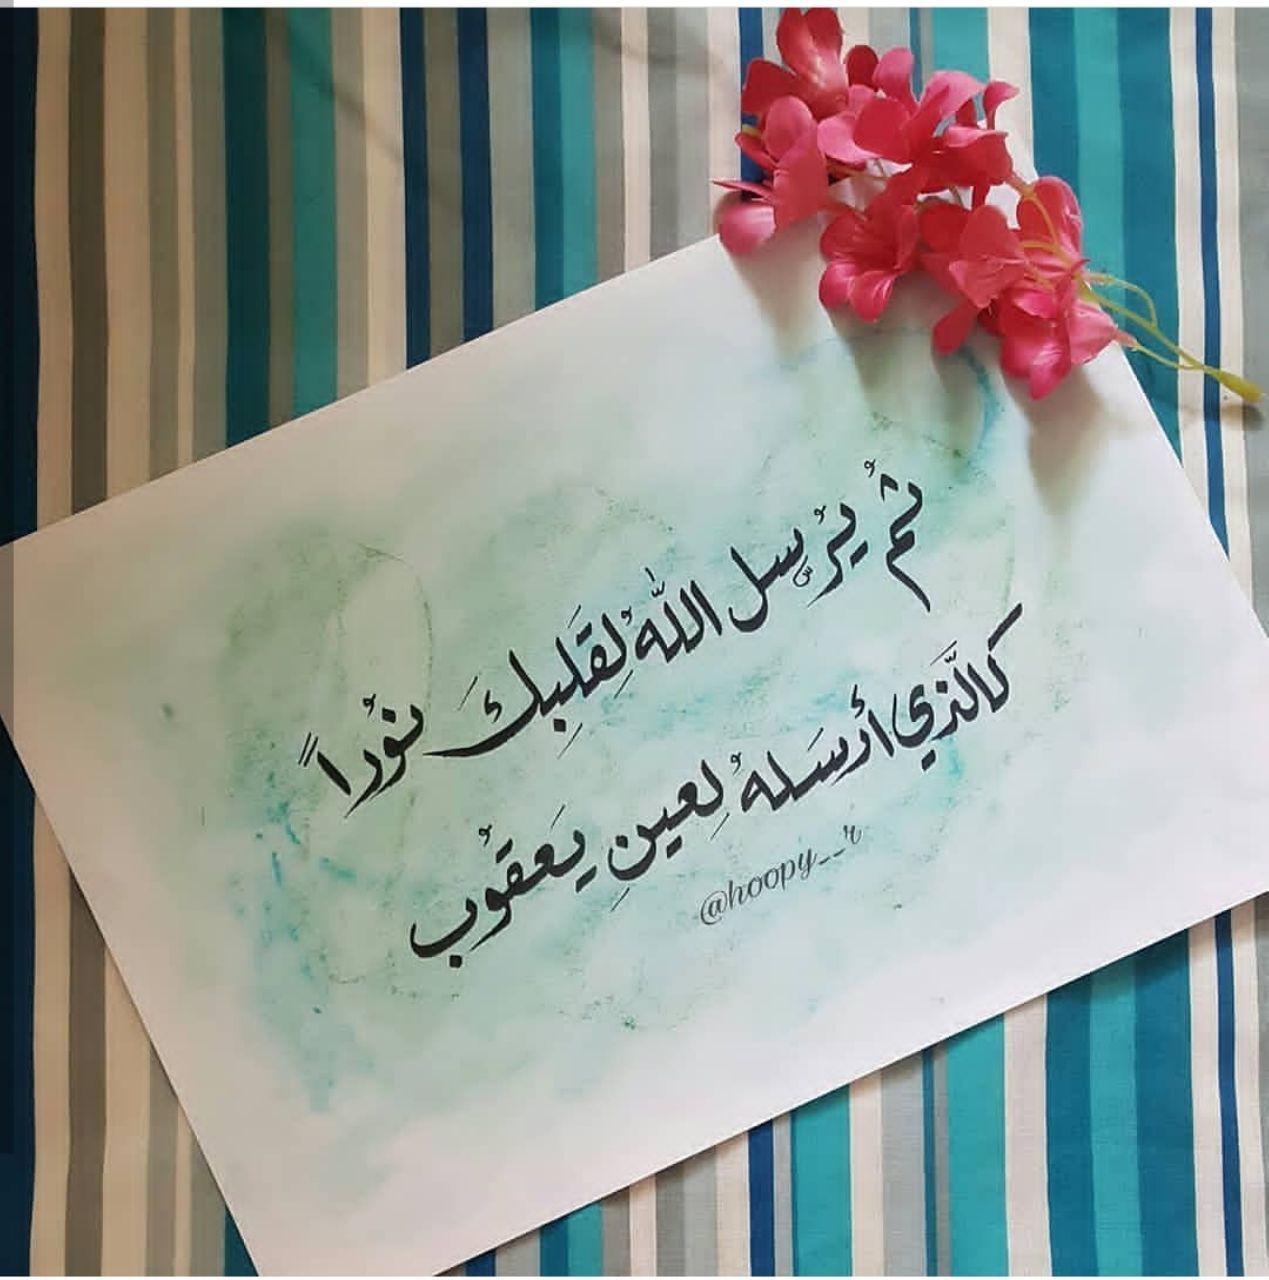 ثُم يُرسِل اللهُ لِقَلبِكَ نُوراً
كالَّذي أرسَلهُ لِعينِ يَعقُوب
@hoopy__r